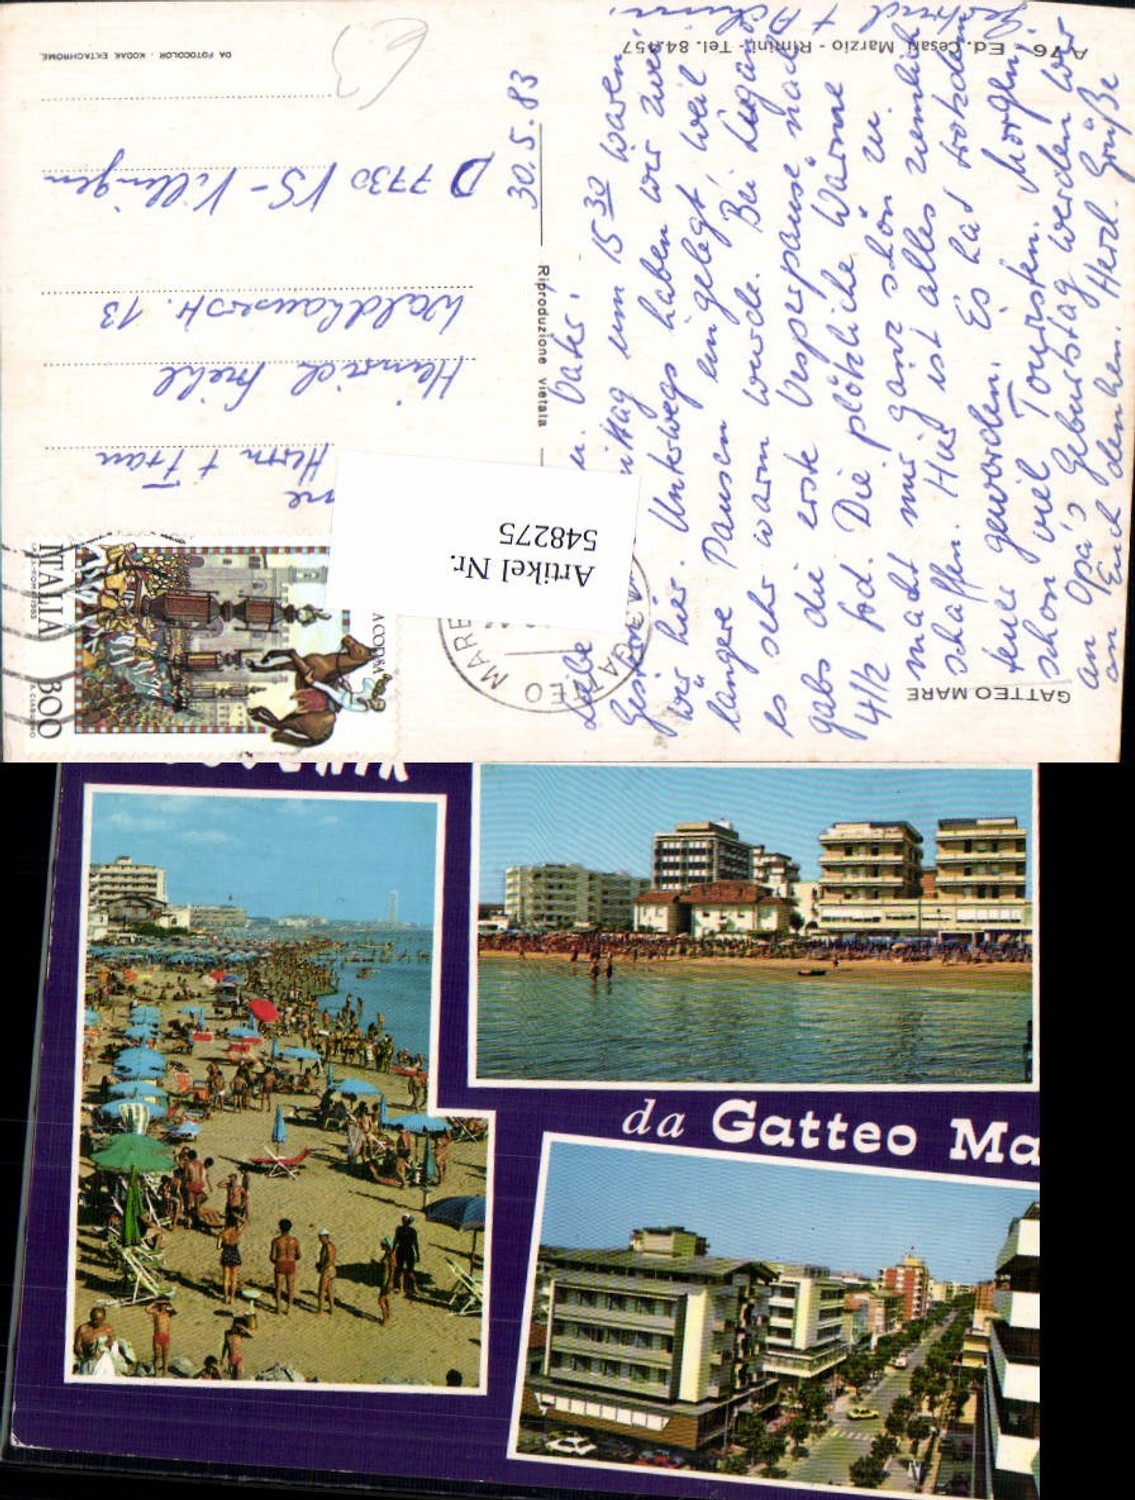 A 76 - Ed. Cesari Marzio - Rimini - Tel. 84.457
DA FOTOCOLOR - KODAK EKTACHROME
GATTEO MARE
Riproduzione vietata
30.5.83
Liebe u. Vater!
Gestern mittag um 15 30 waren
wir hier. Unterwegs haben wir zwei
längere Pausen eingelegt, weil
es sehr warm wurde. Bei Lugano
gabs die erste Vesperpause nach
4 1/2 Std. Die plötzliche Wärme
macht mir ganz schön zu
schaffen. Hier ist alles ziemlich
teuer geworden. Es hat trotzdem
schon viel Touristen. Morgen,
an Opa's Geburtstag werden wir
an Euch denken. Herzl. Grüße
Herrn + Frau
Heinrich
Waldhauserstr. 13
D 7730 VS-Villingen
ITALIA 300
GATTEO MARE
Artikel Nr.
548275
da Gatteo Ma